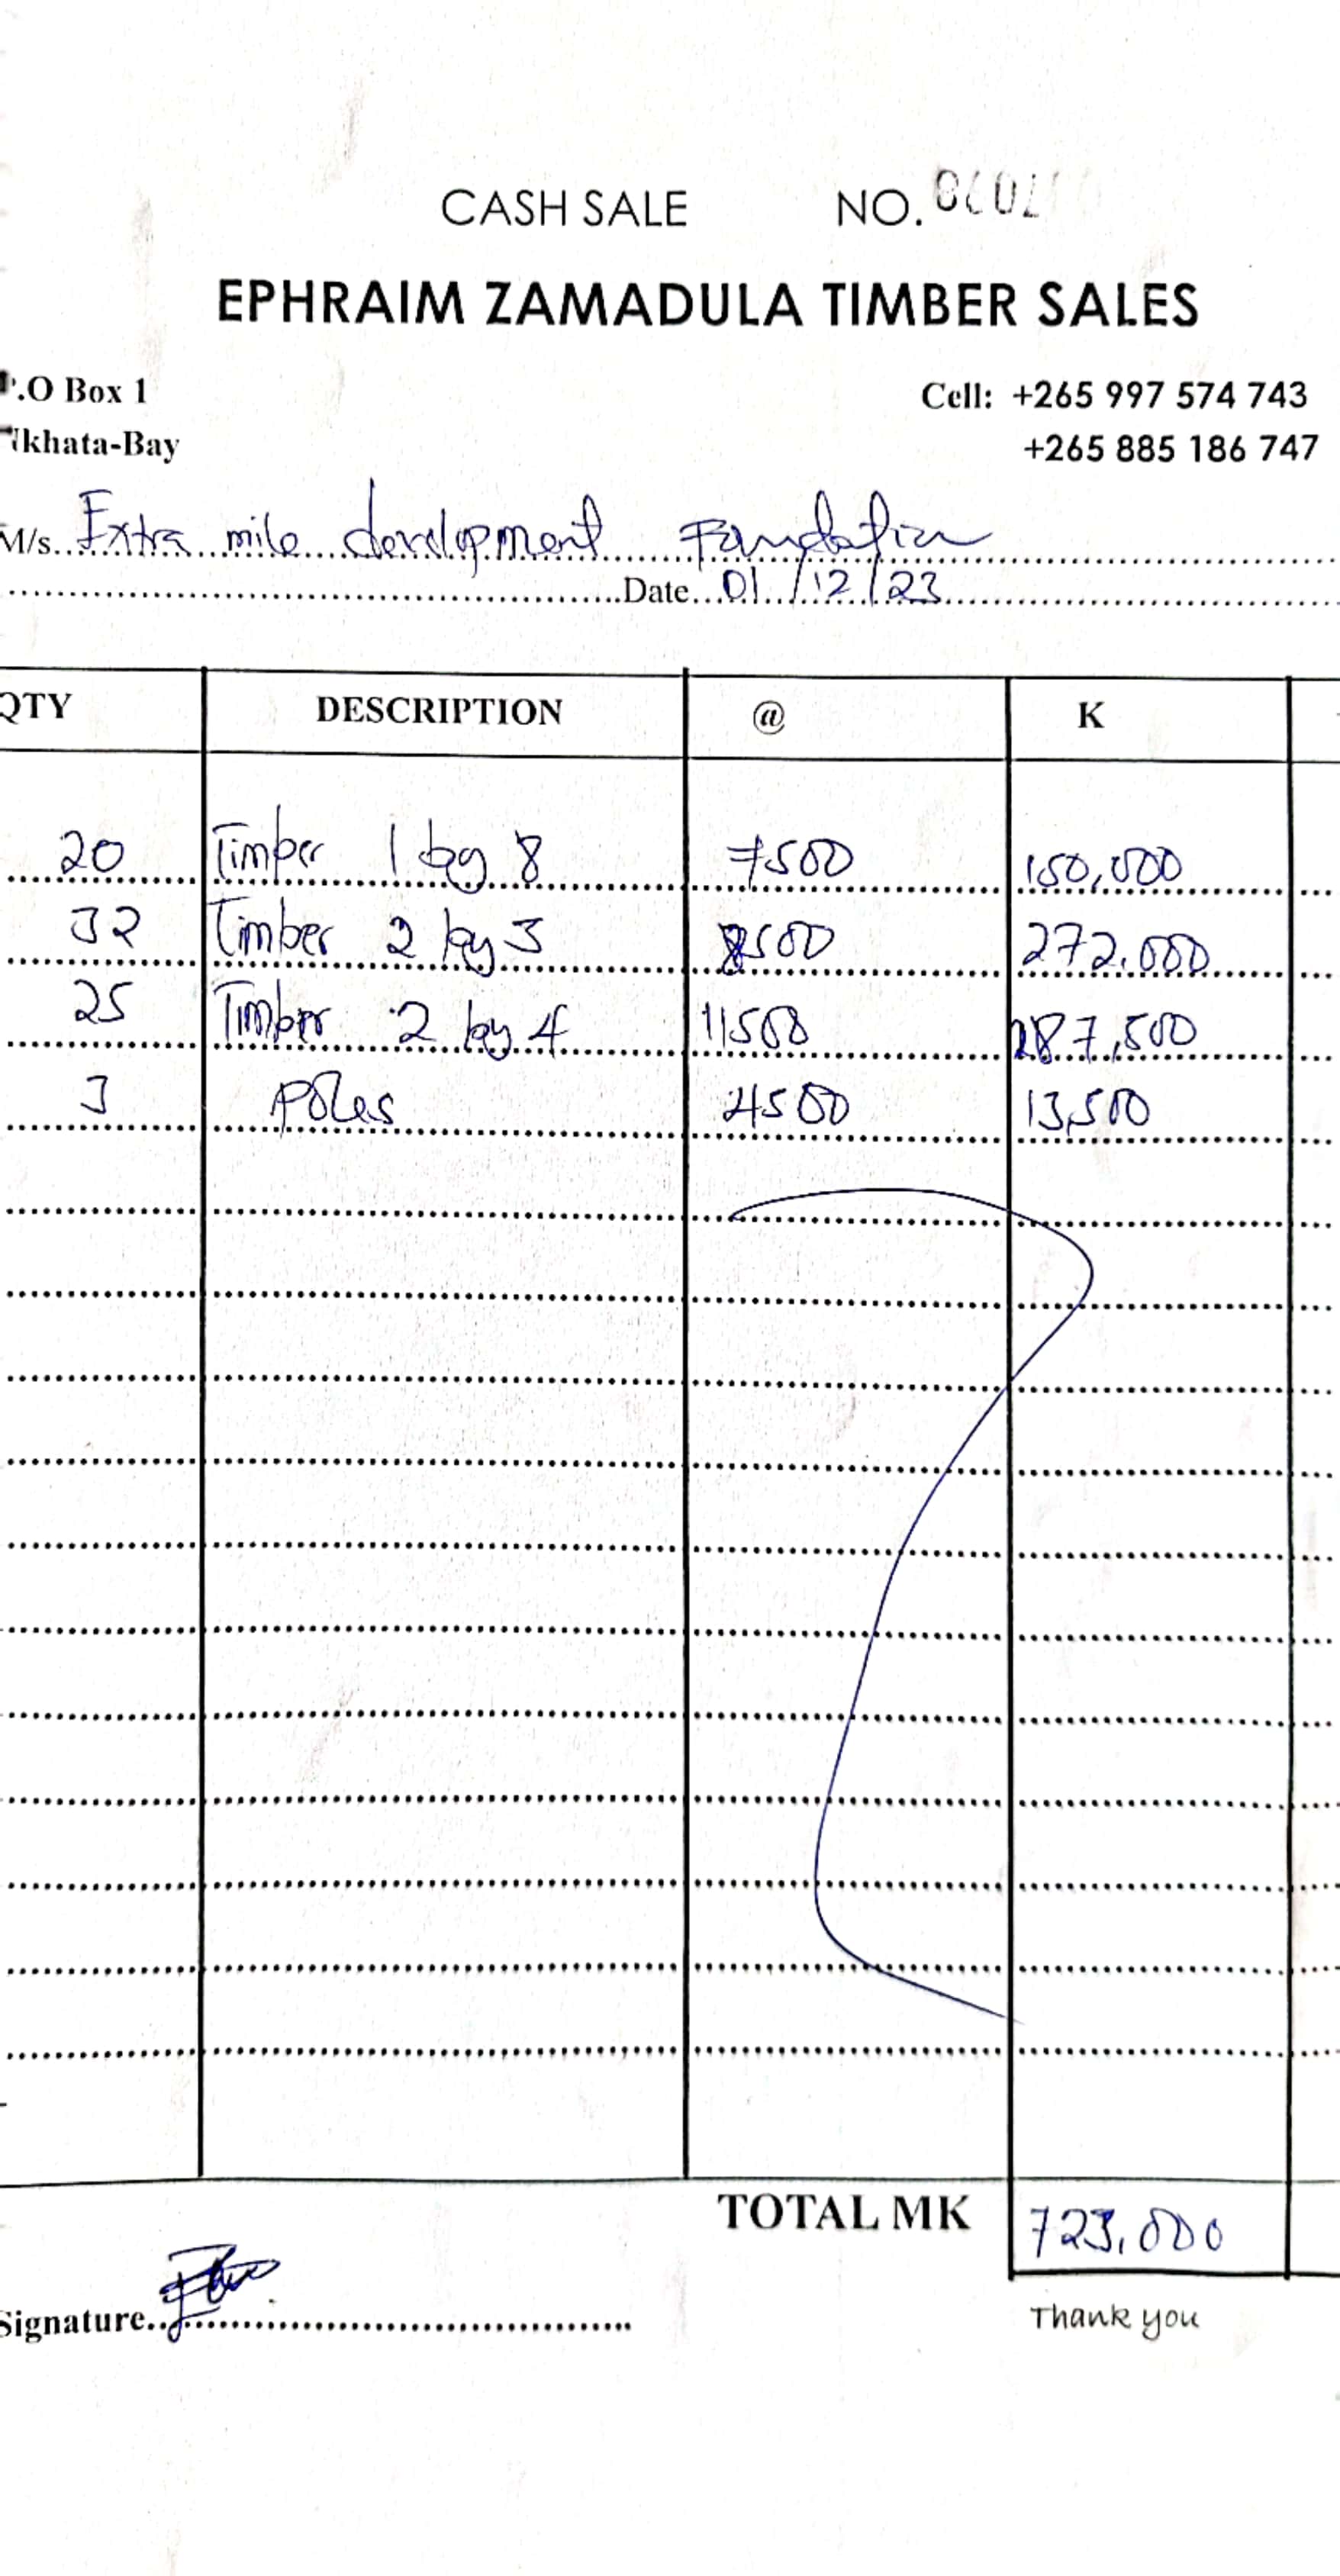 CASH SALE NO.
EPHRAIM ZAMADULA TIMBER SALES
P.O Box 1 Cell: +265 997 574 743
Nkhata-Bay +265 885 186 747
M/s. Extra mile development Foundation
Date 01/12/23
QTY DESCRIPTION @ K
20 Timber 1 by 8 7500 150,000
32 Timber 2 by 3 8500 272,000
25 Timber 2 by 4 11500 287,500
3 Poles 4500 13,500
TOTAL MK 723,000
Signature
Thank you